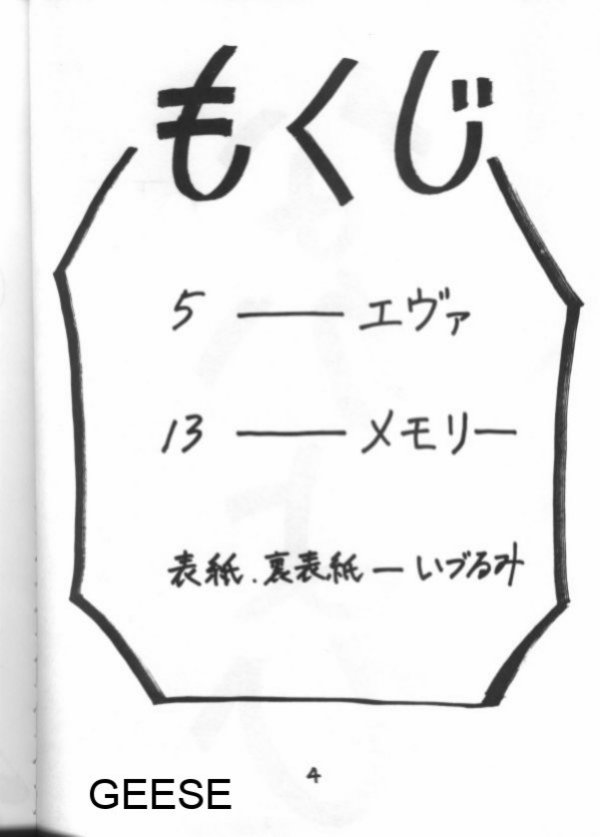 もくじ
5 ── エヴァ
13 ── メモリー
表紙.裏表紙 ─ いづるみ
4
GEESE